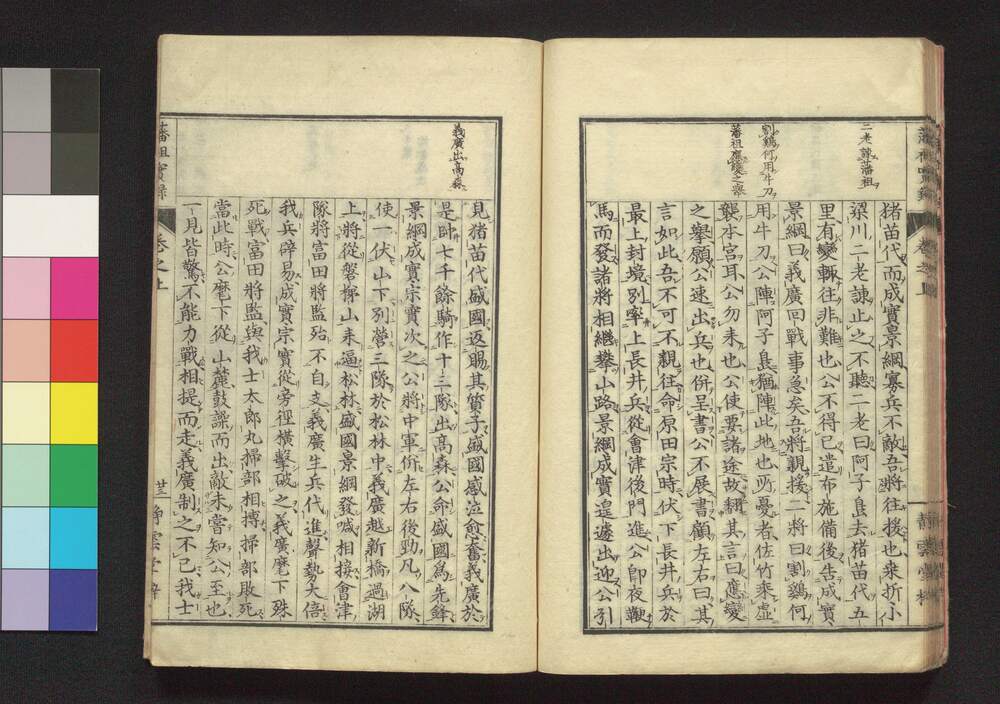 二老諫藩祖
割鷄何用牛刀
藩祖應變之察
猪苗代而成實景綱寡兵不敵吾將往援也來折小
梁川二老諫止之不聽二老曰阿子島去猪苗代五
里有變輙往非難也公不得已遣布施備後告成實
景綱曰義廣回戰事急矣吾將親援二將曰割鷄何
用牛刀公陣阿子島猶陣此地也所憂者佐竹乘虛
襲本宮耳公勿來也公使要諸途故翻其言曰應變
之擧願公速出兵也併呈書公不展書顧左右曰其
言如此吾不可不親往命原田宗時伏下長井兵於
最上封境別率上長井兵從會津後門進公卽夜鞭
馬而發諸將相繼攀山路景綱成實遑遽出迎公引
義廣出高森
見猪苗代盛國返賜其質子盛國感泣愈奮義廣於
是帥七千餘騎作十三隊出高森公命盛國爲先鋒
景綱成實宗實次之公將中軍併左右後勁凡八隊
使一伏山下列營三隊於松林中義廣越新橋過湖
上將從磐梯山來逼松林盛國景綱發喊相接會津
隊將富田將監殆不自支義廣生兵代進聲勢大倍
我兵辟易成實宗實從旁徑橫擊破之義廣麾下殊
死戰富田將監與我士太郎丸掃部相搏掃部敗死
當此時公麾下從山麓鼓譟而出敵未嘗知公至也
一見皆驚不能力戰相提而走義廣制之不已我士
藩祖實錄
卷之上
廿三